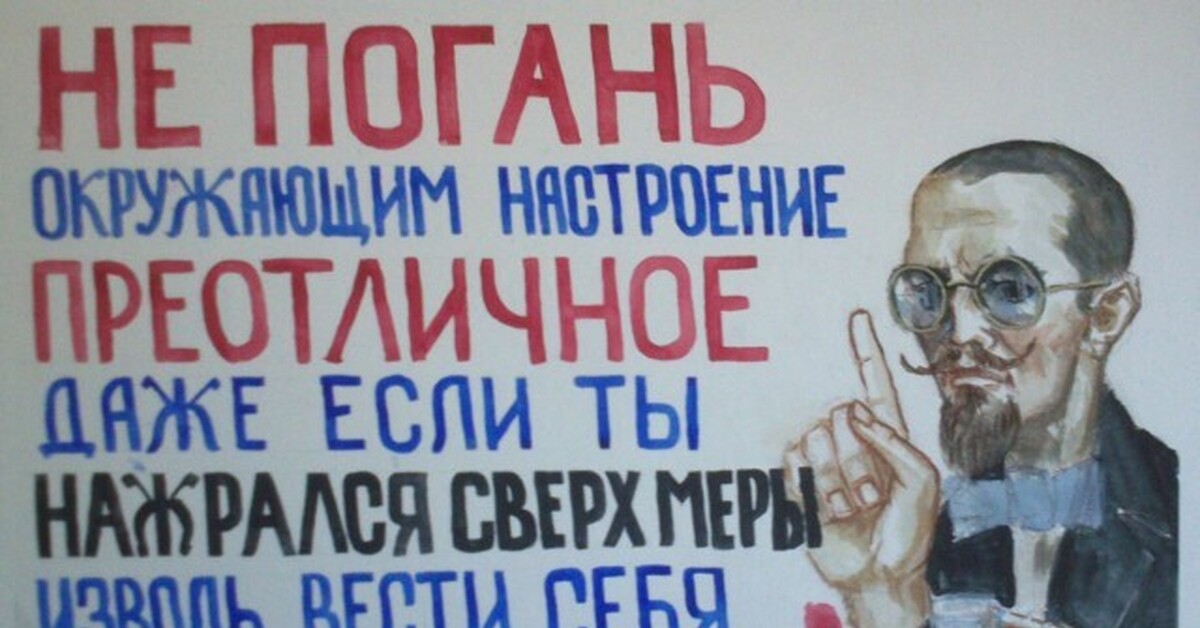 НЕ ПОГАНЬ
ОКРУЖАЮЩИМ НАСТРОЕНИЕ
ПРЕОТЛИЧНОЕ
ДАЖЕ ЕСЛИ ТЫ
НАЖРАЛСЯ СВЕРХ МЕРЫ
ИЗВОЛЬ ВЕСТИ СЕБЯ